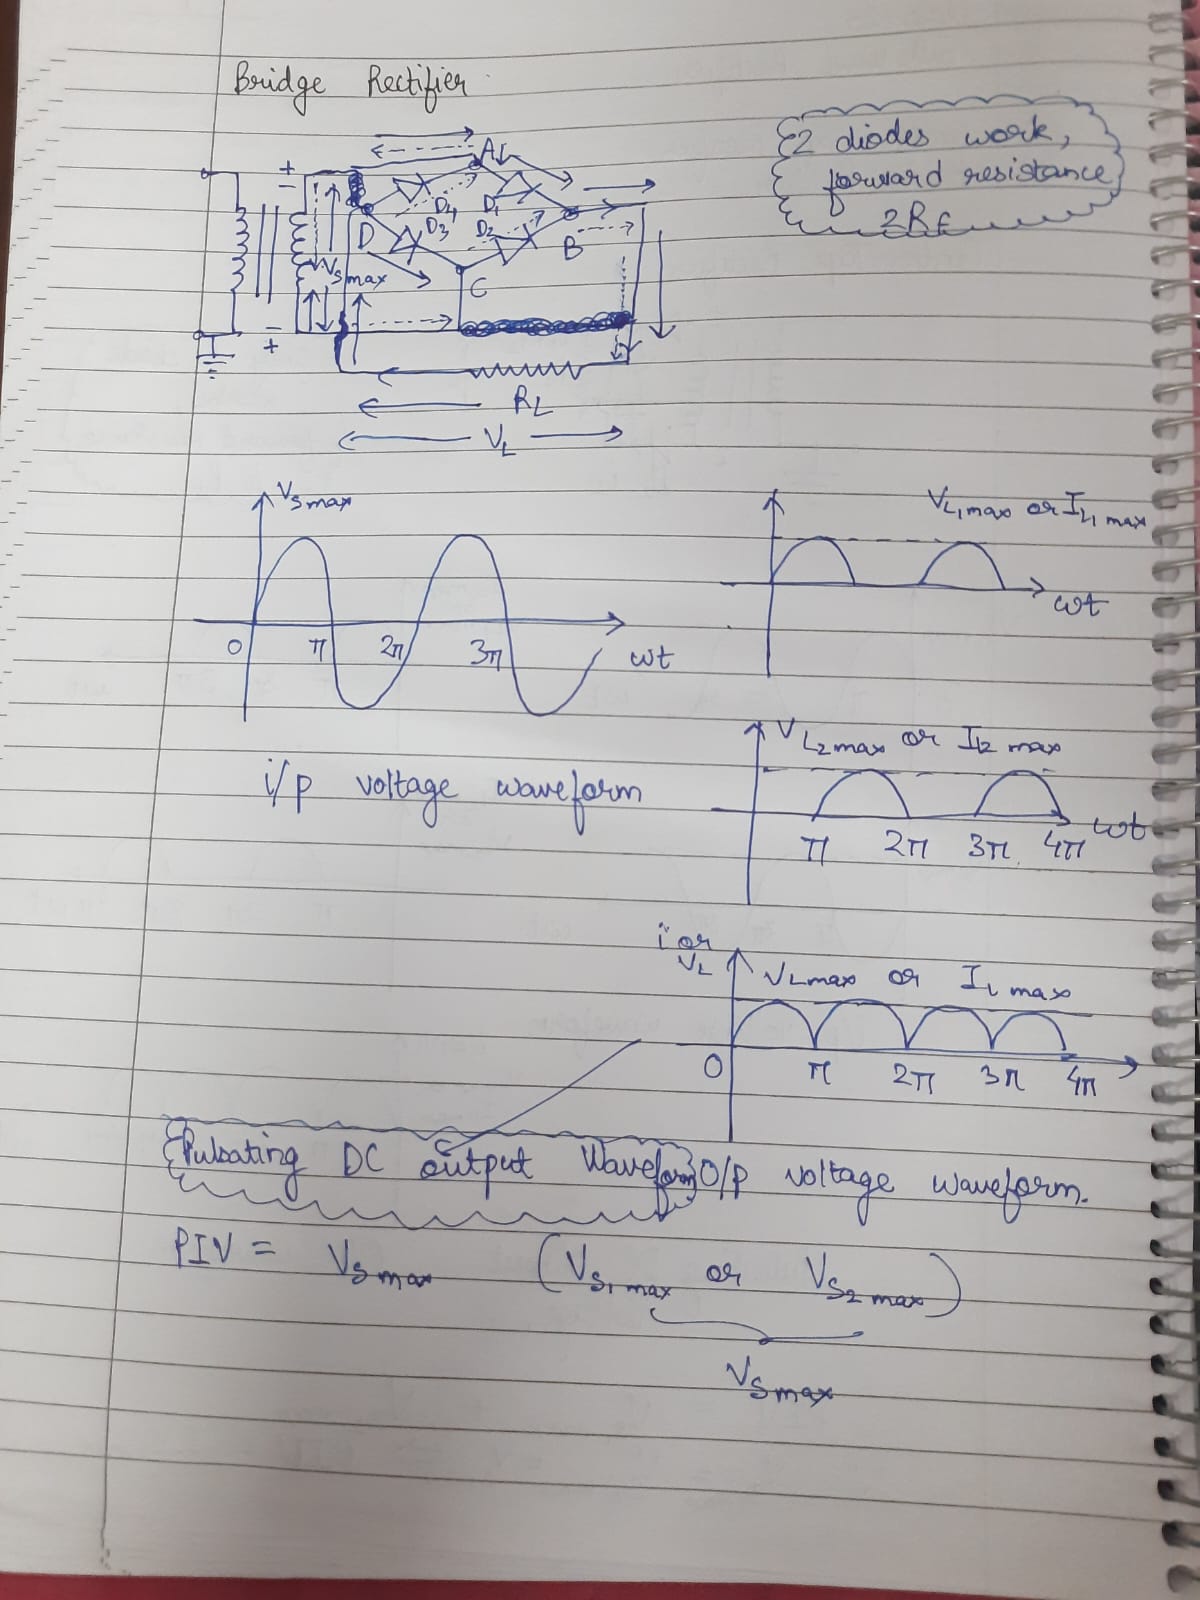 Bridge Rectifier
2 diodes work,
forward resistance
2Rf
+
−
A
D4 D1
D D3 D2
B
Vs max
C
−
+
RL
VL
Vs max
0 π 2π 3π ωt
i/p voltage waveform
VL1 max or IL1 max
ωt
VL2 max or IL2 max
π 2π 3π 4π ωt
i or
VL
VL max or IL max
0 π 2π 3π 4π
Pulsating DC output Waveform
O/P voltage waveform.
PIV = Vs max (Vs1 max or Vs2 max)
Vs max